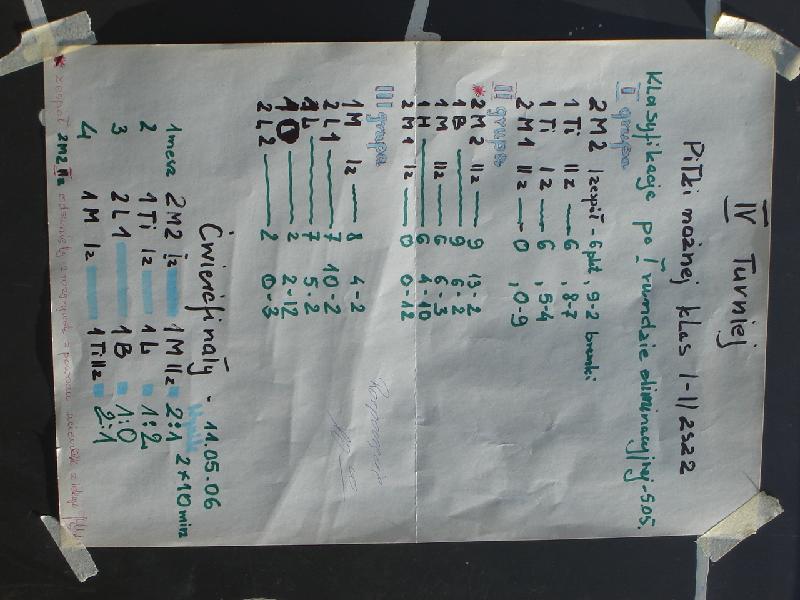 IV Turniej
Piłki nożnej klas I-II ZSZ2
Klasyfikacje po I rundzie eliminacyjnej - 9.05.
I grupa
2M2 I zespół - 6 pkt, 9-2 bramki
1Ti IIz — 6, 8-7
1Ti Iz — 6, 5-4
2M1 IIz — 0, 0-9
II grupa
* 2M2 IIz — 9 13-2
1B — 9 6-2
1M IIz — 6 6-3
1H — 6 4-10
2M1 Iz — 0 0-12
III grupa
1M Iz — 8 4-2
2L1 — 7 10-2
1L — 7 5-2
1 — 2 2-12
2L2 — 2 0-3
Ćwierćfinały - 11.05.06
2×10min
1 mecz 2M2 Iz — 1M IIz 2:1
2 1Ti Iz — 1L 1:2
3 2L1 — 1B 1:0
4 1M Iz — 1Ti IIz 2:1
* zespół 2M2 IIz